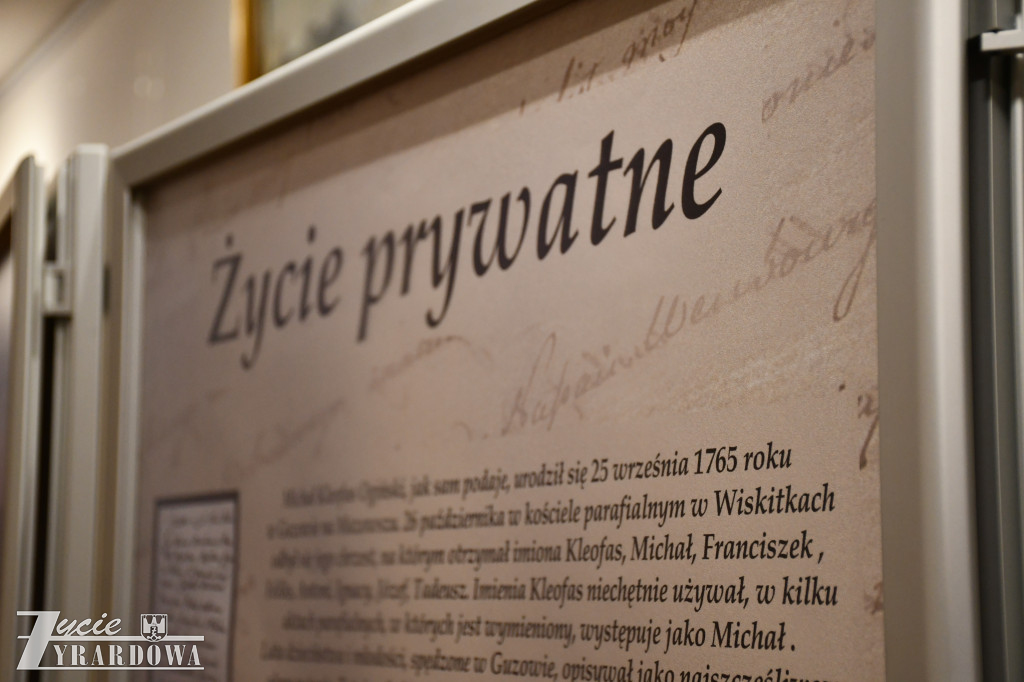 Życie prywatne
Michał Kleofas Ogiński, jak sam podaje, urodził się 25 września 1765 roku
w Guzowie na Mazowszu. 26 października w kościele parafialnym w Wiskitkach
odbył się jego chrzest, na którym otrzymał imiona Kleofas, Michał, Franciszek ,
Feliks, Antoni, Ignacy, Józef, Tadeusz. Imienia Kleofas niechętnie używał, w kilku
aktach parafialnych, w których jest wymieniony, występuje jako Michał .
Lata dzieciństwa i młodości, spędzone w Guzowie, opisywał jako
Życie
ŻYRARDOWA